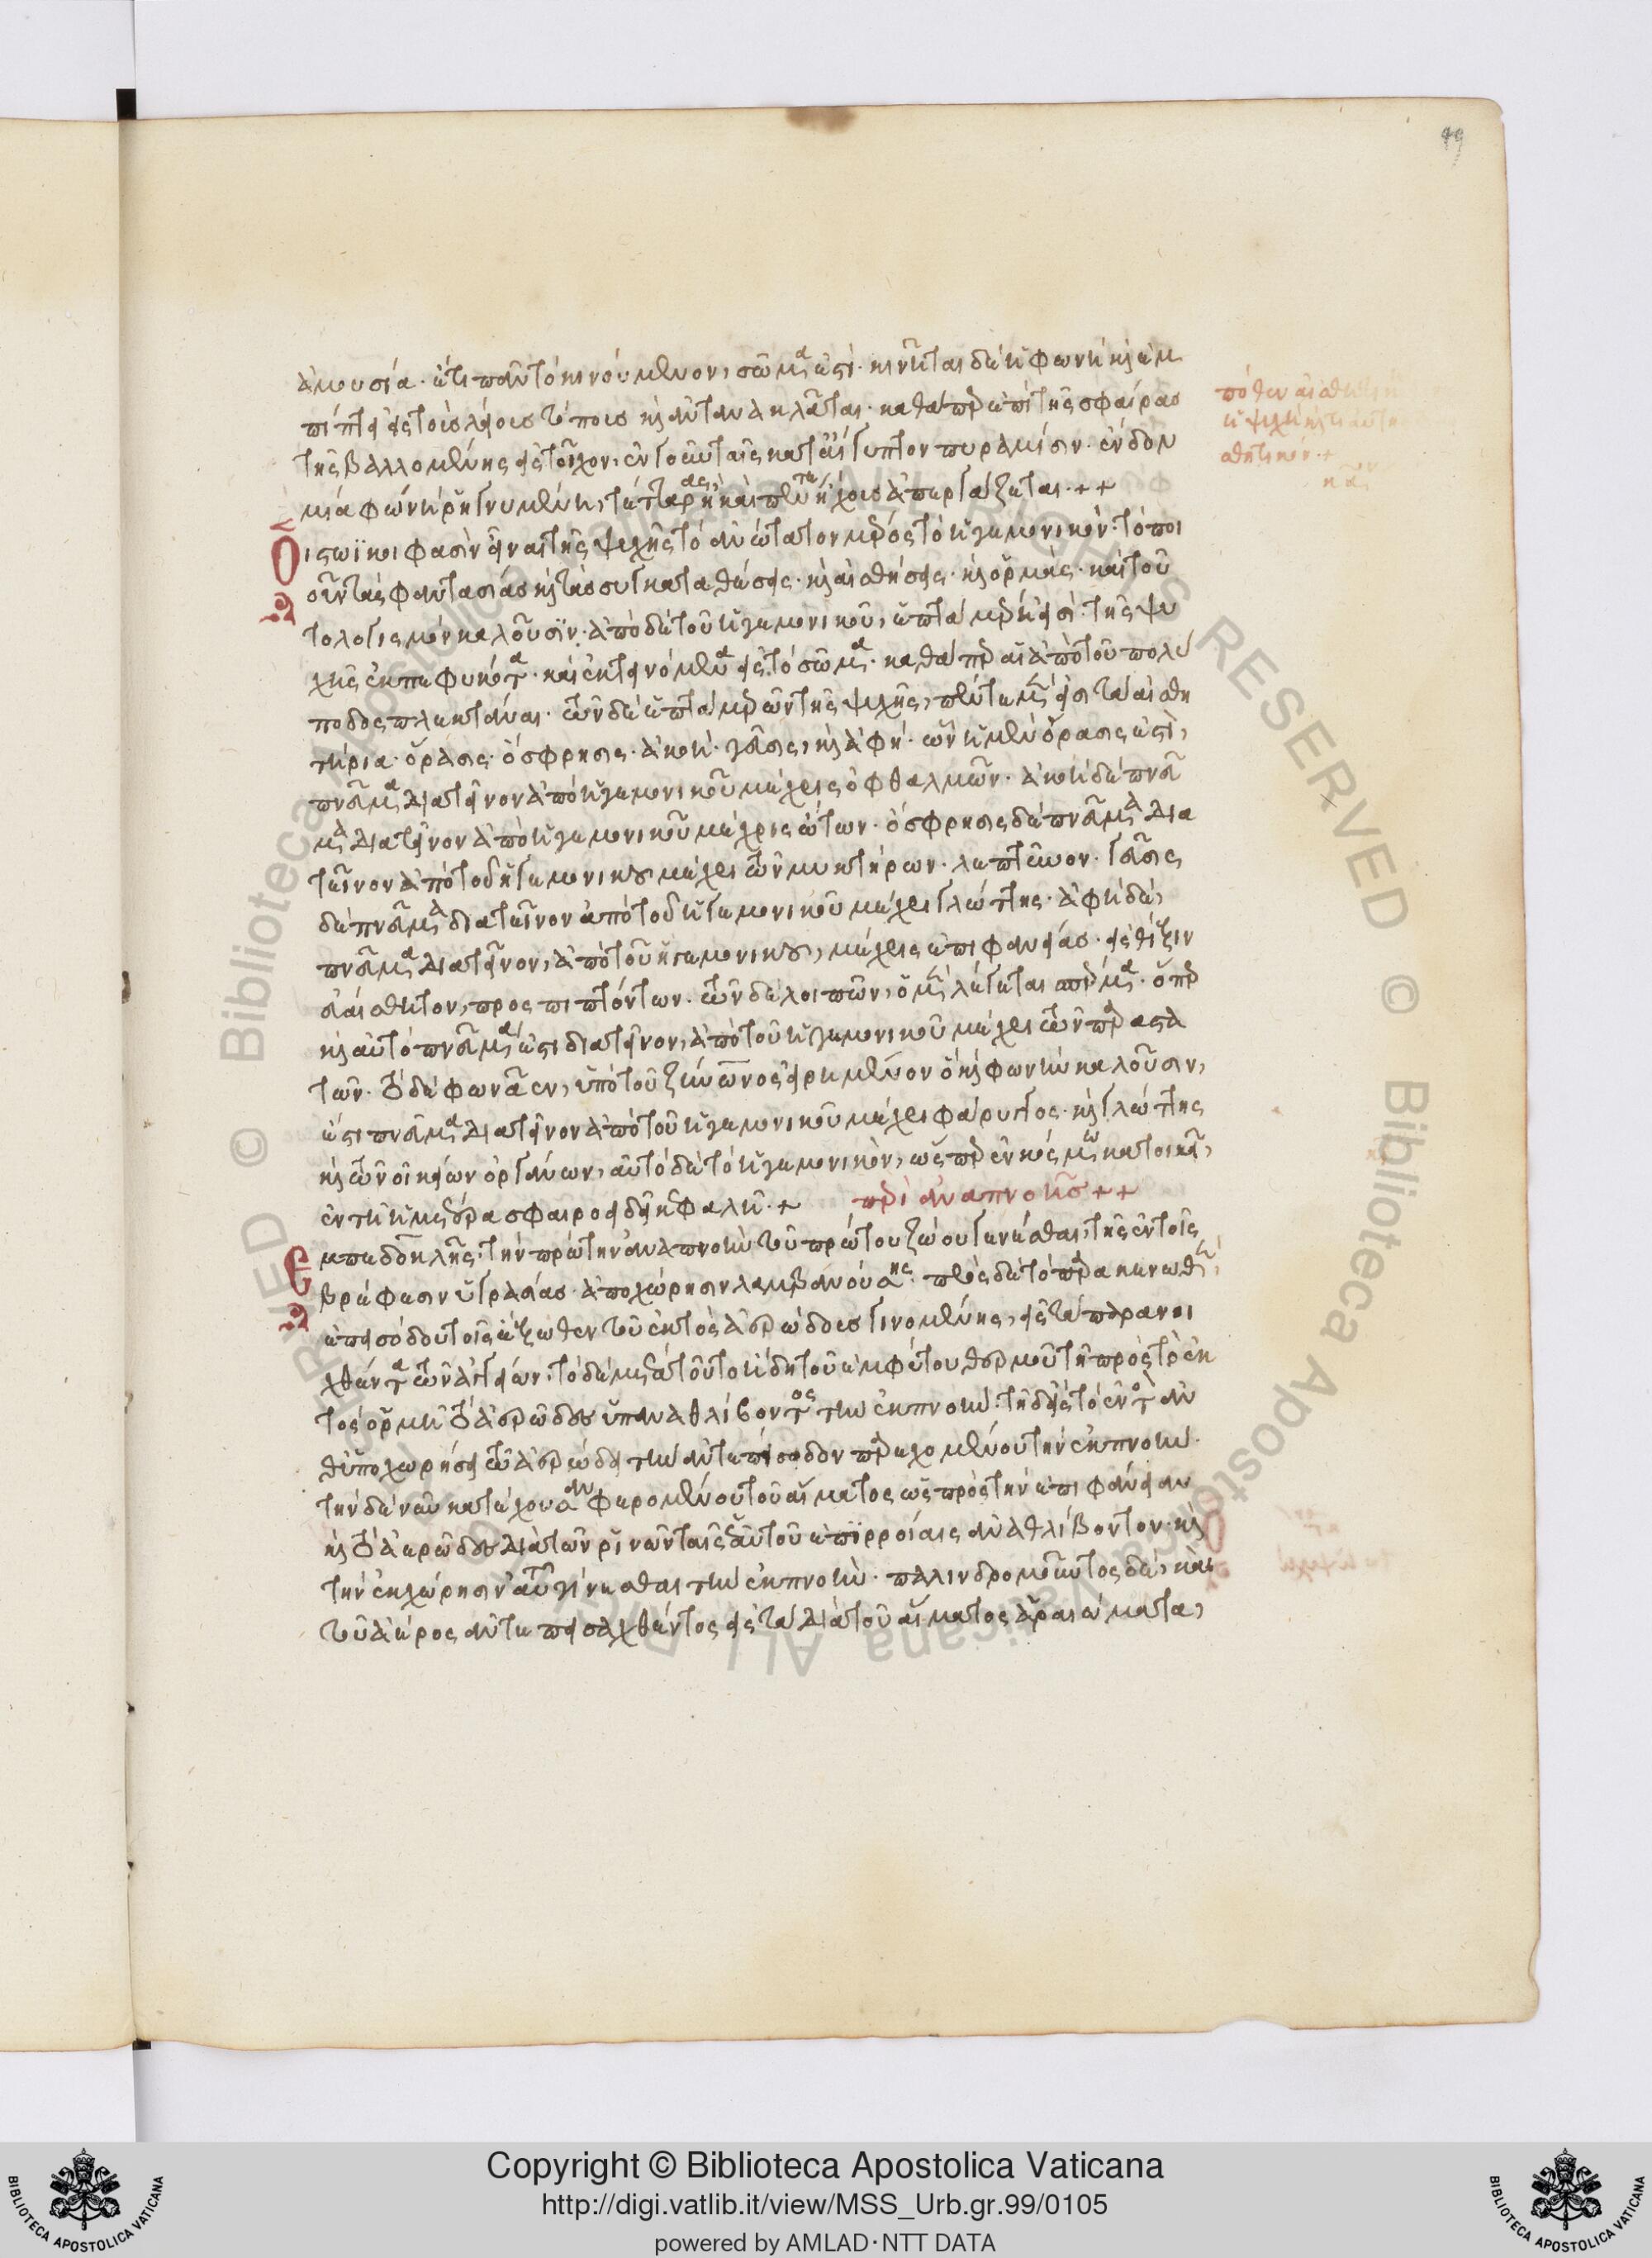 ἀμουσία. ἔτι πᾶν τὸ κινούμενον, σῶμα ἐστί. κινεῖται δὲ ἡ φωνὴ καὶ ἐμ
πίπτει εἰς τοὺς λείους τόπους καὶ ἀντανακλᾶται. καθάπερ ἐπὶ τῆς σφαίρας
τῆς βαλλομένης εἰς τοῖχον, ἐν γοῦν ταῖς κατ' αἴγυπτον πυραμίσιν. ἔνδον
μία φωνὴ ῥηγνυμένη, τέτταρας ἢ καὶ πέντε ἤχους ἀπεργάζεται. ++
Οἱ στωϊκοί φασὶν εἶναι τῆς ψυχῆς τὸ ἀνώτατον μέρος τὸ ἡγεμονικόν. τὸ ποι
οῦν τὰς φαντασίας καὶ τὰς συγκαταθέσεις. καὶ αἰσθήσεις. καὶ ὁρμάς. καὶ τοῦ
το λογισμὸν καλοῦσιν. ἀπὸ δὲ τοῦ ἡγεμονικοῦ, ἑπτὰ μέρη εἰσὶ τῆς ψυ
χῆς ἐκπεφυκότα. καὶ ἐκτεινόμενα εἰς τὸ σῶμα. καθάπερ αἱ ἀπὸ τοῦ πολύ
ποδος πλεκτάναι. τῶν δὲ ἑπτὰ μερῶν τῆς ψυχῆς, πέντε μέν εἰσι τὰ αἰσθη
τήρια. ὅρασις. ὄσφρησις. ἀκοή. γεῦσις, καὶ ἁφή. ὧν ἡ μὲν ὅρασις ἐστί,
πνεῦμα διατεῖνον ἀπὸ ἡγεμονικοῦ μέχρις ὀφθαλμῶν. ἀκοὴ δὲ πνεῦ
μα διατεῖνον ἀπὸ ἡγεμονικοῦ μέχρις ὤτων. ὄσφρησις δὲ πνεῦμα δια
τεῖνον ἀπὸ τοῦ ἡγεμονικοῦ μέχρι τῶν μυκτήρων. λεπτῦνον. γεῦσις
δὲ πνεῦμα διατεῖνον ἀπὸ τοῦ ἡγεμονικοῦ μέχρι γλώττης. ἁφὴ δὲ,
πνεῦμα διατεῖνον, ἀπὸ τοῦ ἡγεμονικοῦ, μέχρις ἐπιφανείας. εἰς θίξιν
εὐαίσθητον, προσπιπτόντων. τῶν δὲ λοιπῶν, ὃ μὲν λέγεται σπέρμα. ὅπερ
καὶ αὐτὸ πνεῦμα ἐστι διατεῖνον, ἀπὸ τοῦ ἡγεμονικοῦ μέχρι τῶν παραστα
τῶν. τὸ δὲ φωνᾶεν, ὑπὸ τοῦ ζήνωνος εἰρημένον ὃ καὶ φωνὴν καλοῦσιν,
ἐστι πνεῦμα διατεῖνον ἀπὸ τοῦ ἡγεμονικοῦ μέχρι φάρυγγος. καὶ γλώττης
καὶ τῶν οἰκείων ὀργάνων, αὐτὸ δὲ τὸ ἡγεμονικὸν, ὥσπερ ἐν κόσμω κατοικεῖ,
ἐν τῇ ἡμετέρα σφαιροειδεῖ κεφαλῇ. + περὶ ἀναπνοῆς ++
Εμπεδοκλῆς. τὴν πρώτην ἀναπνοὴν τοῦ πρώτου ζώου γενέσθαι, τῆς ἐν τοῖς
βρέφεσιν ὑγρασίας ἀποχώρησιν λαμβανούσης. πρὸς δὲ τὸ παρακενωθὲν
ἐπεισόδου τοῖς ἔξωθεν τοῦ ἐκτὸς ἀερώδους γινομένης, εἰς τὰ παρανοι
χθέντα τῶν ἀγγείων. τὸ δὲ μετὰ τοῦτο ἤδη τοῦ ἐμφύτου θερμοῦ τῇ πρὸς τὸ ἐκ
τὸς ὁρμῇ τὸ ἀερῶδες ὑπαναθλίβοντος τὴν ἐκπνοήν. τῇ δ' εἰς τὸ ἐντὸς ἀν
θυποχωρήσει τῶ ἀερώδει τὴν ἀντεπείσοδον παρεχομένου τὴν ἐκπνοήν.
τὴν δὲ νῦν κατέχουσαν φερομένου τοῦ αἵματος ὡς πρὸς τὴν ἐπιφάνειαν
καὶ τὸ ἀερῶδες διὰ τῶν ῥινῶν ταῖς ἑαυτοῦ ἐπιρροίαις ἀναθλίβοντον. καὶ
τὴν ἐκχώρησιν αὐτοῦ γίνεσθαι τὴν ἐκπνοήν. παλινδρομοῦντος δὲ, καὶ
τοῦ ἀέρος ἀντεπεισαχθέντος εἰς τὰ διὰ τοῦ αἵματος ἀραιώματα,
πόθεν αἰσθητικὴ
ἡ ψυχὴ